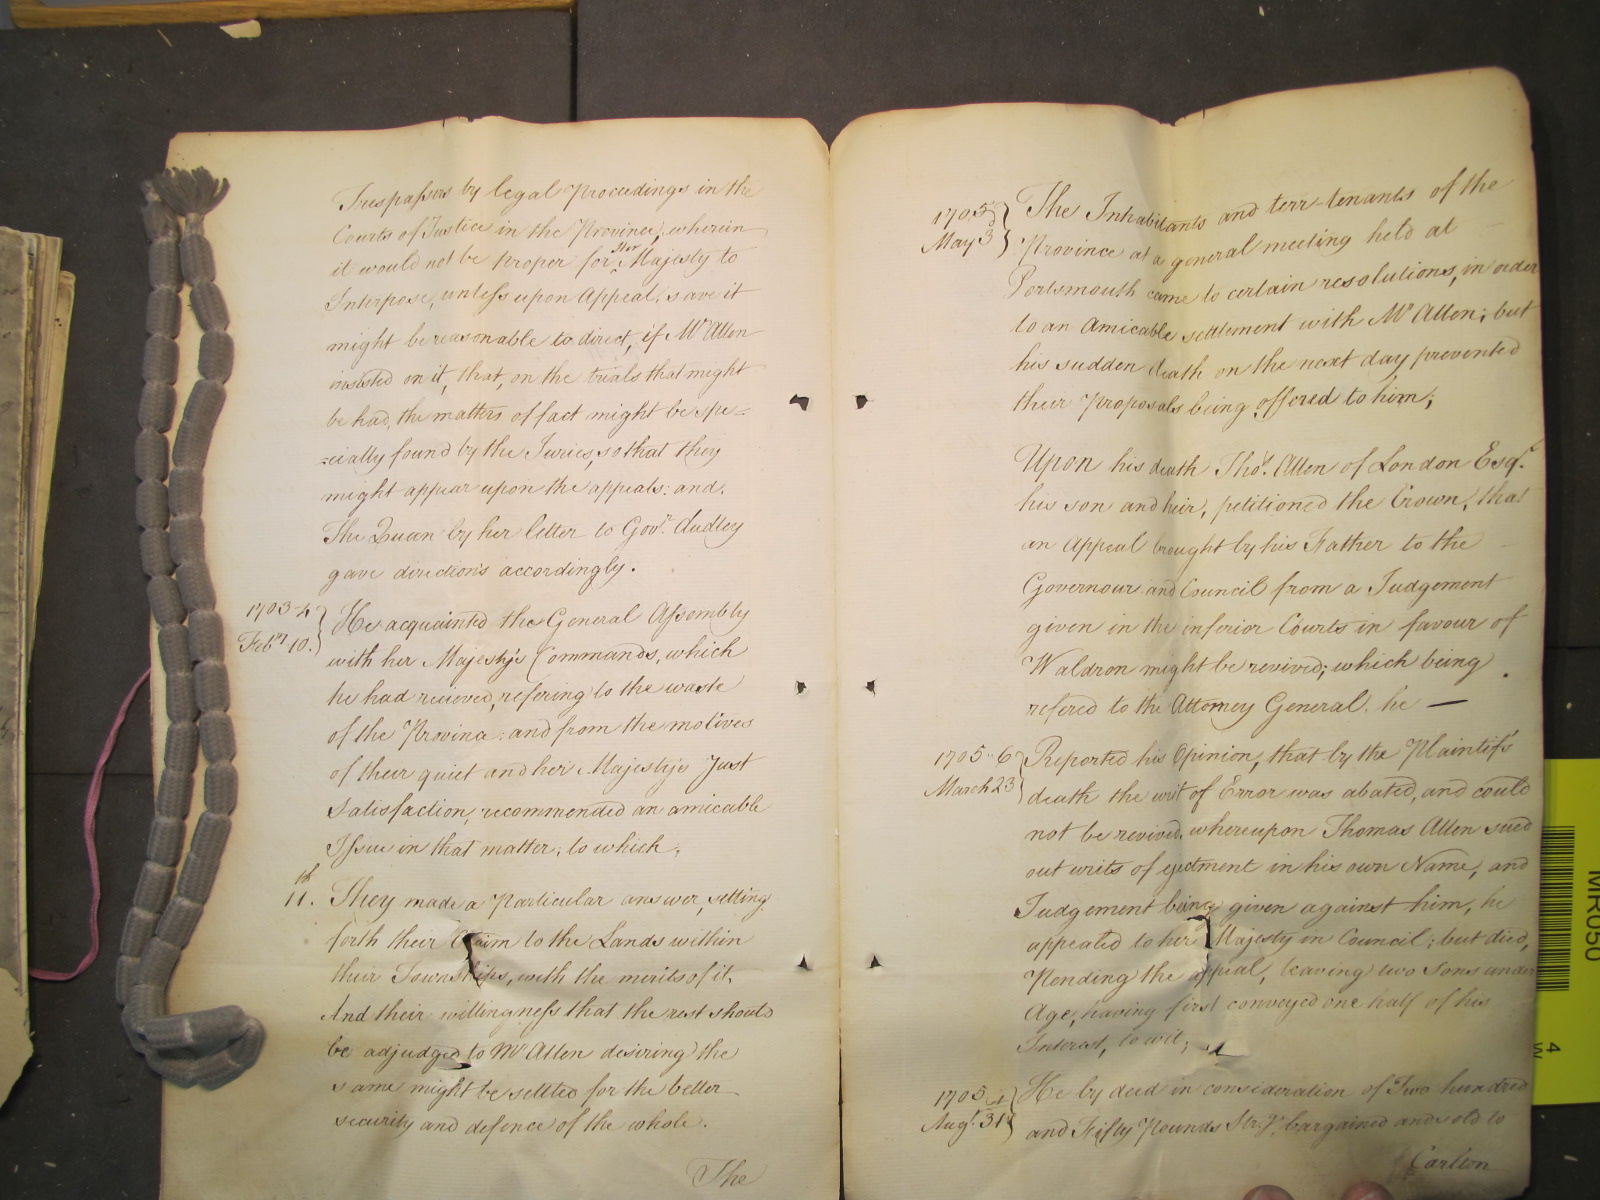 Trespassers by legal Proceedings in the
Courts of Justice in the Province, wherein
it would not be proper for Her Majesty to
Interpose, unless upon Appeal, save it
might be reasonable to direct, if Mr Allen
insisted on it, that, on the trials that might
be had, the matters of fact might be spe=
=cially found by the Juries, so that they
might appear upon the appeals: and.
The Queen by her letter to Govr. Dudley
gave directions accordingly.
1703-4
Feby 10.
He acquainted the General Assembly
with her Majesty's Commands, which
he had recieved, refering to the waste
of the Province: and from the motives
of their quiet and her Majesty's Just
Satisfaction, recommended an amicable
Issue in that matter; to which,
11th.
They made a Particular answer, setting
forth their Claim to the Lands within
their Townships, with the merits of it,
And their willingness that the rest should
be adjudged to Mr Allen desiring the
same might be settled for the better
security and defence of the whole.
The
1705
May 3d
The Inhabitants and terr-tenants of the
Province at a general meeting held at
Portsmouth came to certain resolutions, in order
to an Amicable settlement with Mr Allen; but
his sudden death on the next day prevented
their Proposals being offered to him;
Upon his death Thos. Allen of London Esqr.
his son and heir, petitioned the Crown, that
an Appeal brought by his Father to the
Governour and Council from a Judgement
given in the inferior Courts in favour of
Waldron might be revived; which being
refered to the Attorney General. he —
1705-6
March 23
Reported his Opinion, that by the Plaintif's
death the writ of Error was abated, and could
not be revived, whereupon Thomas Allen sued
out writs of ejectment in his own Name, and
Judgement being given against him, he
appealed to her Majesty in Council; but died,
Pending the appeal, leaving two Sons under
Age, having first conveyed one half of his
Interest, to wit;
1705
Augt. 31st
He by deed in consideration of Two hundred
and Fifty Pounds bargained and sold to
Carlton
MR050
4